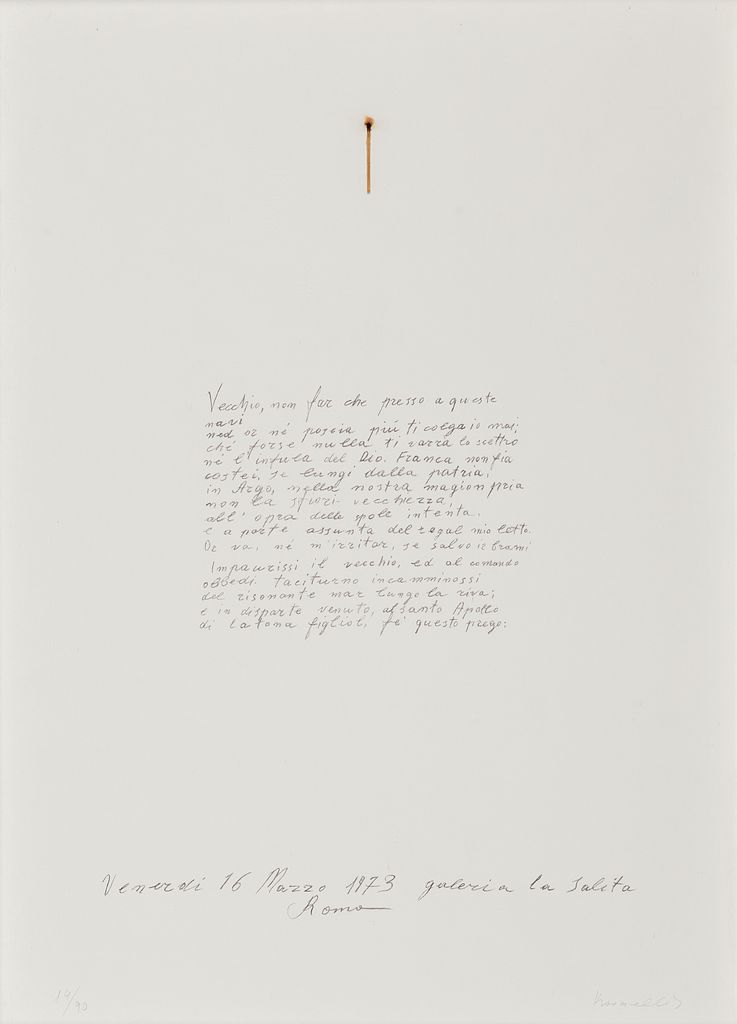 Vecchio, non far che presso a queste
navi
ned or né poscia piú ti colga io mai;
ché forse nulla ti varrà lo scettro
né l'infula del Dio. Franca non fia
costei, se lungi dalla patria,
in Argo, nella nostra magion pria
non la sfiori vecchiezza,
all'opra delle spole intenta,
e a parte assunta del regal mio letto.
Or va, né m'irritar, se salvo ir brami
Impaurissi il vecchio, ed al comando
obbedí taciturno incamminossi
del risonante mar lungo la riva;
e in disparte venuto, al santo Apollo
di Latona figliol, fe' questo prego:
Venerdí 16 Marzo 1973 galeria la Salita
Roma
19/90
Kounellis